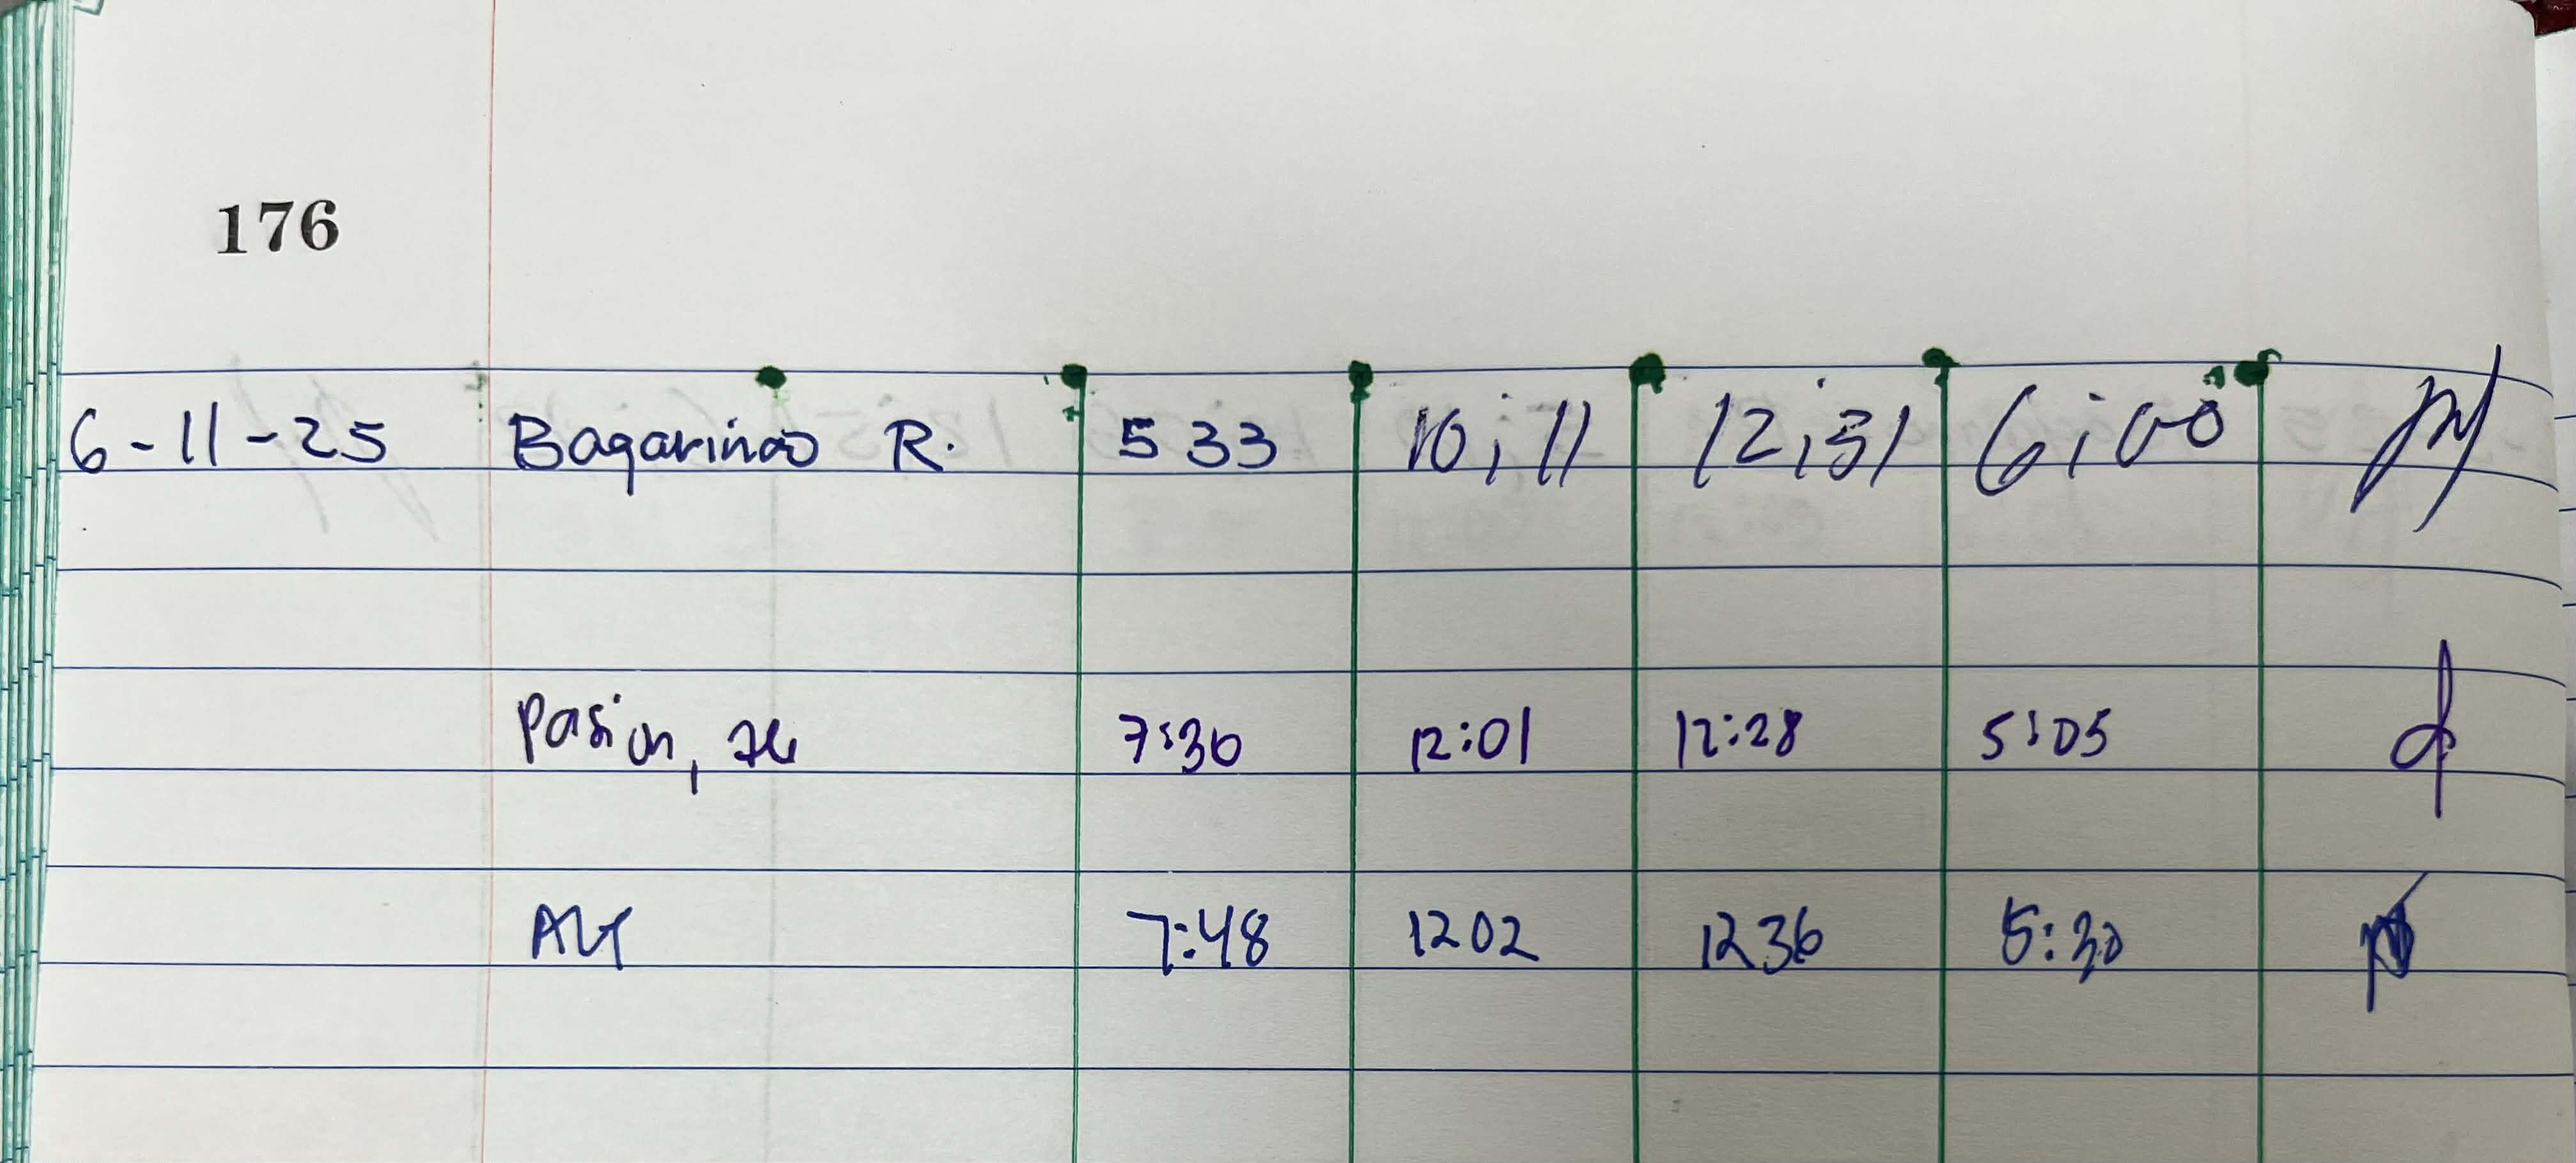 176
6-11-25 Bagarinao R. 533 10:11 12:31 6:00
Pasion, 7:30 12:01 12:28 5:05
7:48 1202 1236 5:30